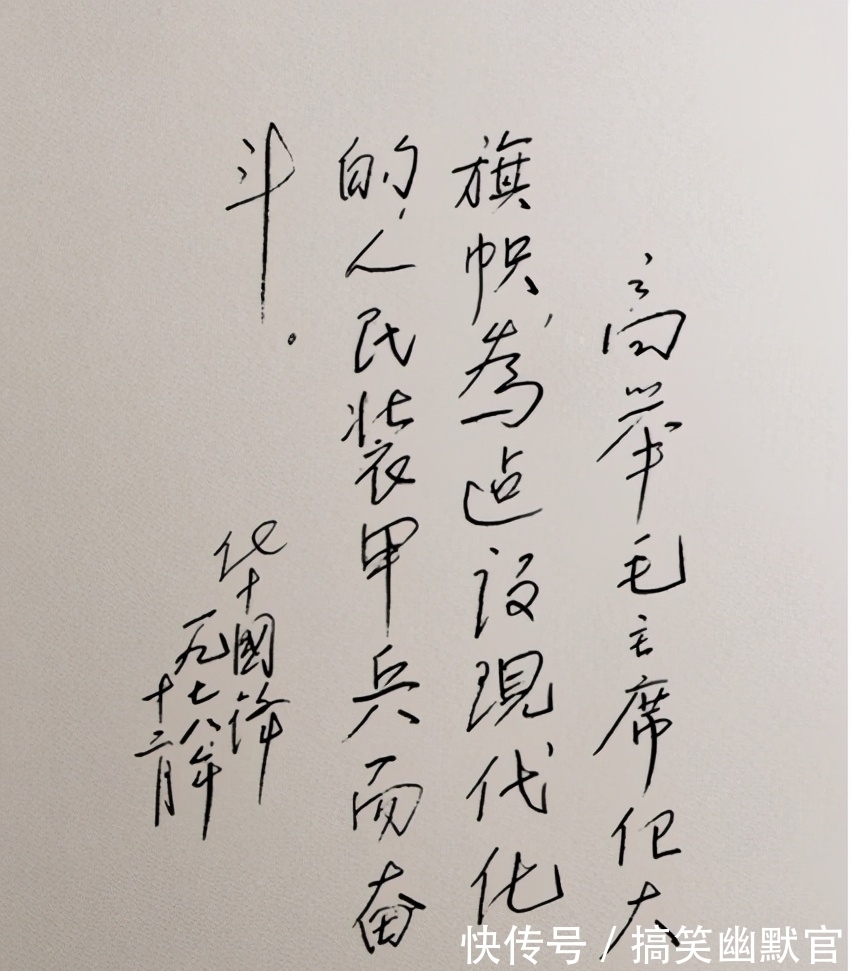 高举毛主席伟大
旗帜为建设现代化
的人民装甲兵而奋
斗.
华国锋
一九七八年
十二月
快传号 / 搞笑幽默官